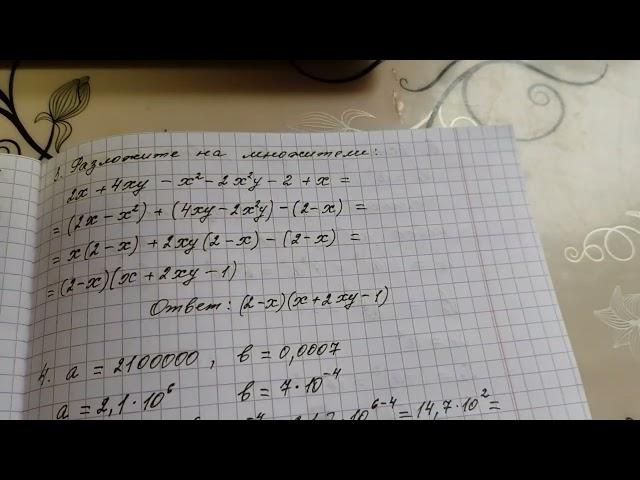 3. Разложите на множители:
2x + 4xy - x² - 2x²y - 2 + x =
= (2x - x²) + (4xy - 2x²y) - (2 - x) =
= x(2 - x) + 2xy(2 - x) - (2 - x) =
= (2-x)(x + 2xy - 1)
Ответ: (2-x)(x+2xy-1)
4. a = 2100000, b = 0,0007
a = 2,1·10⁶ b = 7·10⁻⁴
10⁶⁻⁴ = 14,7·10² =